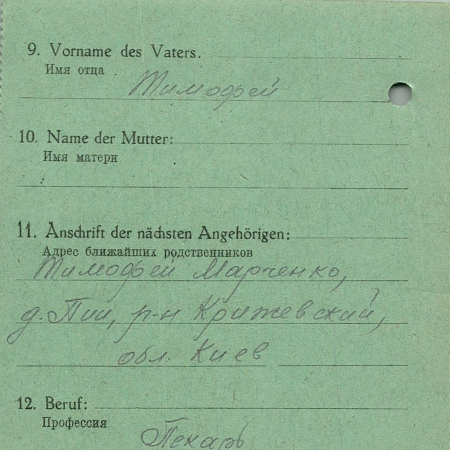 9. Vorname des Vaters.
Имя отца
Тимофей
10. Name der Mutter:
Имя матери
11. Anschrift der nächsten Angehörigen:
Адрес ближайших родственников
Тимофей Марченко,
д. Пии, р-н Крижевский,
обл. Киев
12. Beruf:
Профессия
Пекарь